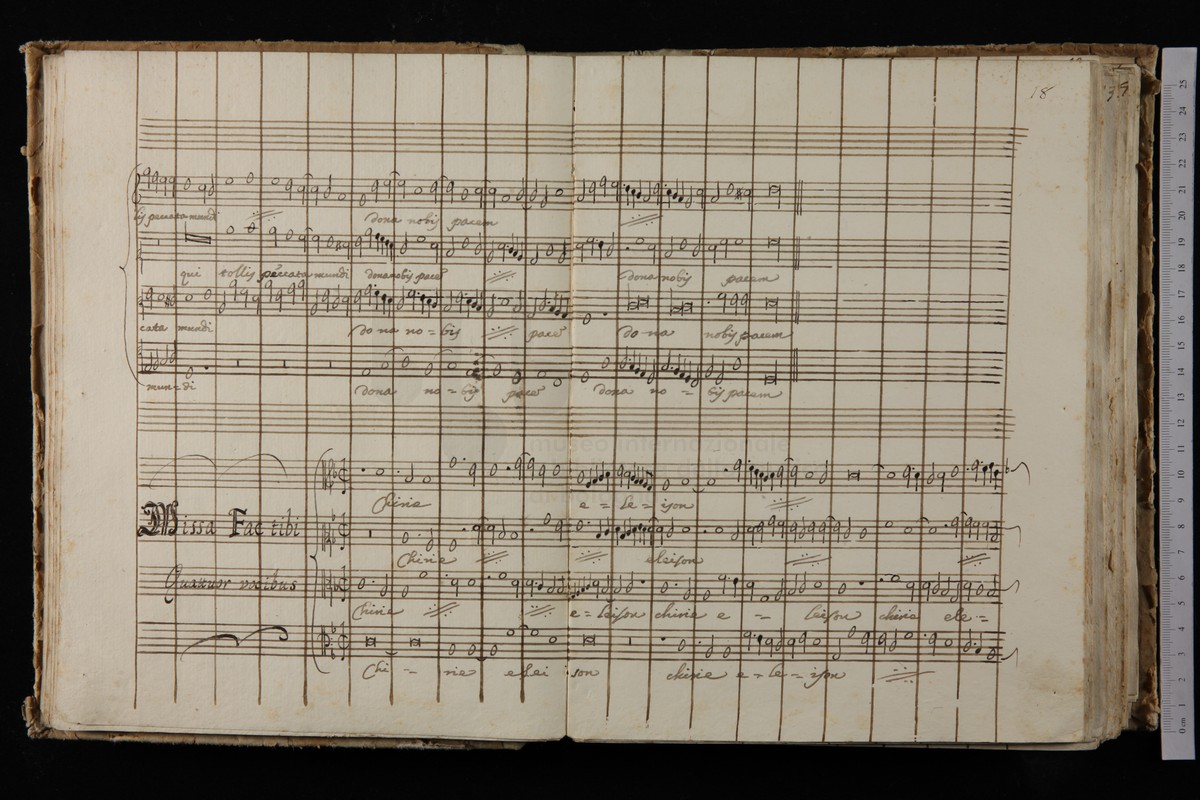 18
39
lis peccata mundi dona nobis pacem
qui tollis peccata mundi dona nobis pace dona nobis pacem
cata mundi do na no = bis pace do na nobis pacem
mun = di dona no = bis pace dona no = bis pacem
museo internazionale
Chirie e = le = ison
Missa Fac tibi
Chirie eleison
Quatuor vocibus
Chirie e = leison chirie e = leison chirie ele =
Chi = rie elei son chirie e = le = ison